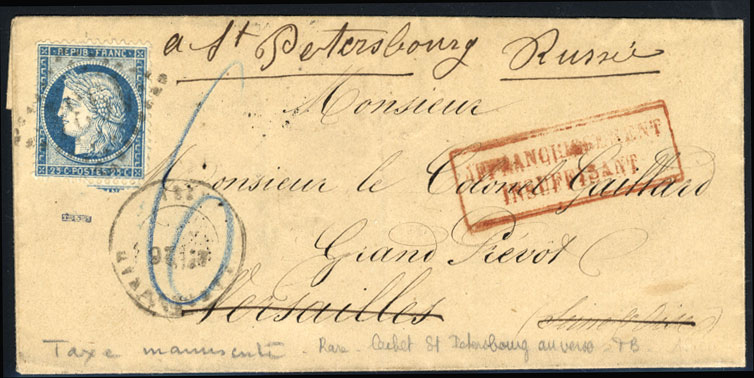 a St Petersbourg Russie
REPUB. FRANC.
25 C. POSTES 25 C.
Monsieur
AFFRANCHISSEMENT
INSUFFISANT
Monsieur le Colonel Gaillard
Grand Prévot
Versailles
6
Taxe manuscrite - Rare - Cachet St Petersbourg au verso - TB